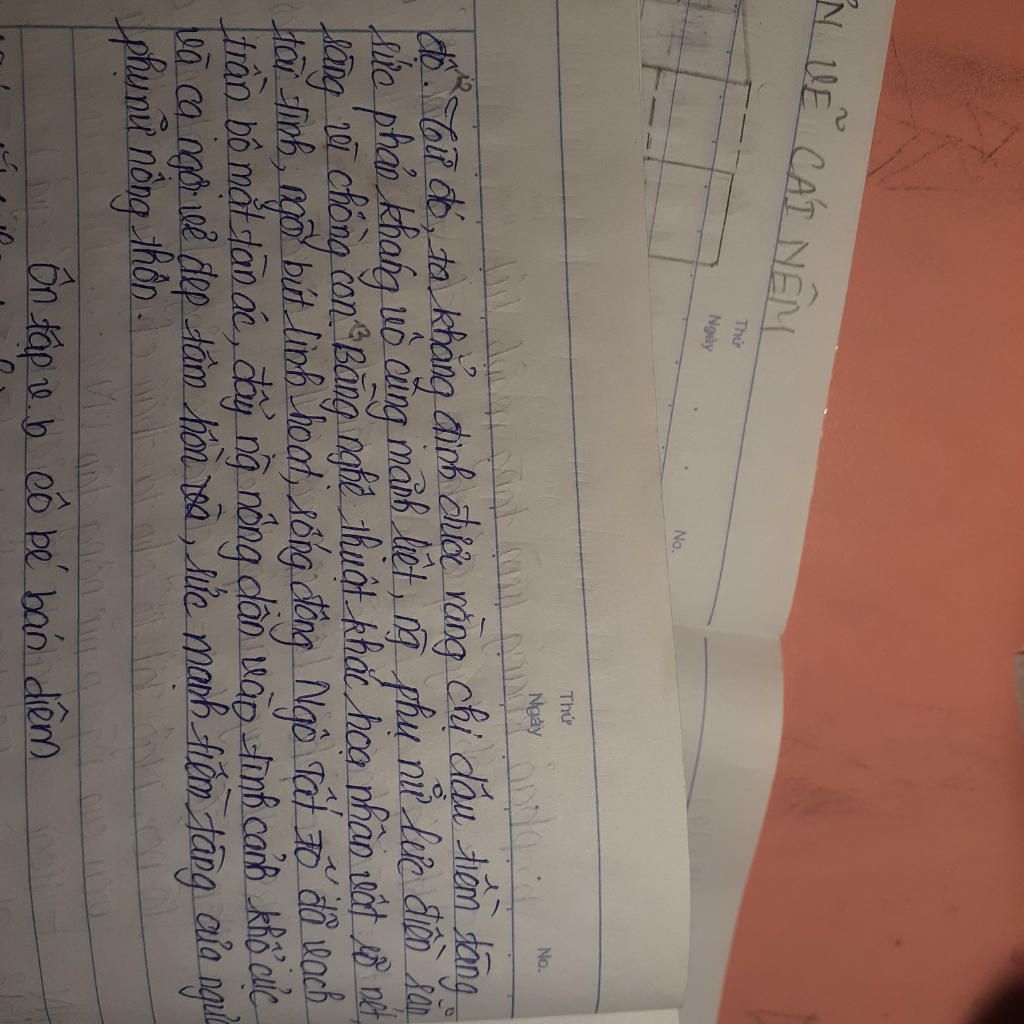 ỄN VỀ CÁI NÊM
Thứ
Ngày
No.
Thứ
Ngày
No.
đó. 12 Từ đó, ta khẳng định được rằng chị dậu tiềm tàng
sức phản kháng vô cùng mãnh liệt, ng phụ nữ lực điền sẵn
sàng vì chồng con. 13 Bằng nghệ thuật khắc họa nhân vật rõ nét,
tài tình, ngòi bút linh hoạt, sống động Ngô Tất Tố đã vạch
trần bộ mặt tàn ác, đẩy ng nông dân vào tình cảnh khổ cực
và ca ngợi vẻ đẹp tâm hồn và, sức mạnh tiềm tàng của người
phụ nữ nông thôn.
Ôn tập v.b cô bé bán diêm